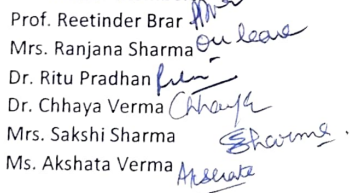 Prof. Reetinder Brar
Mrs. Ranjana Sharma On leave
Dr. Ritu Pradhan
Dr. Chhaya Verma Chhaya
Mrs. Sakshi Sharma Sharma.
Ms. Akshata Verma Akshata